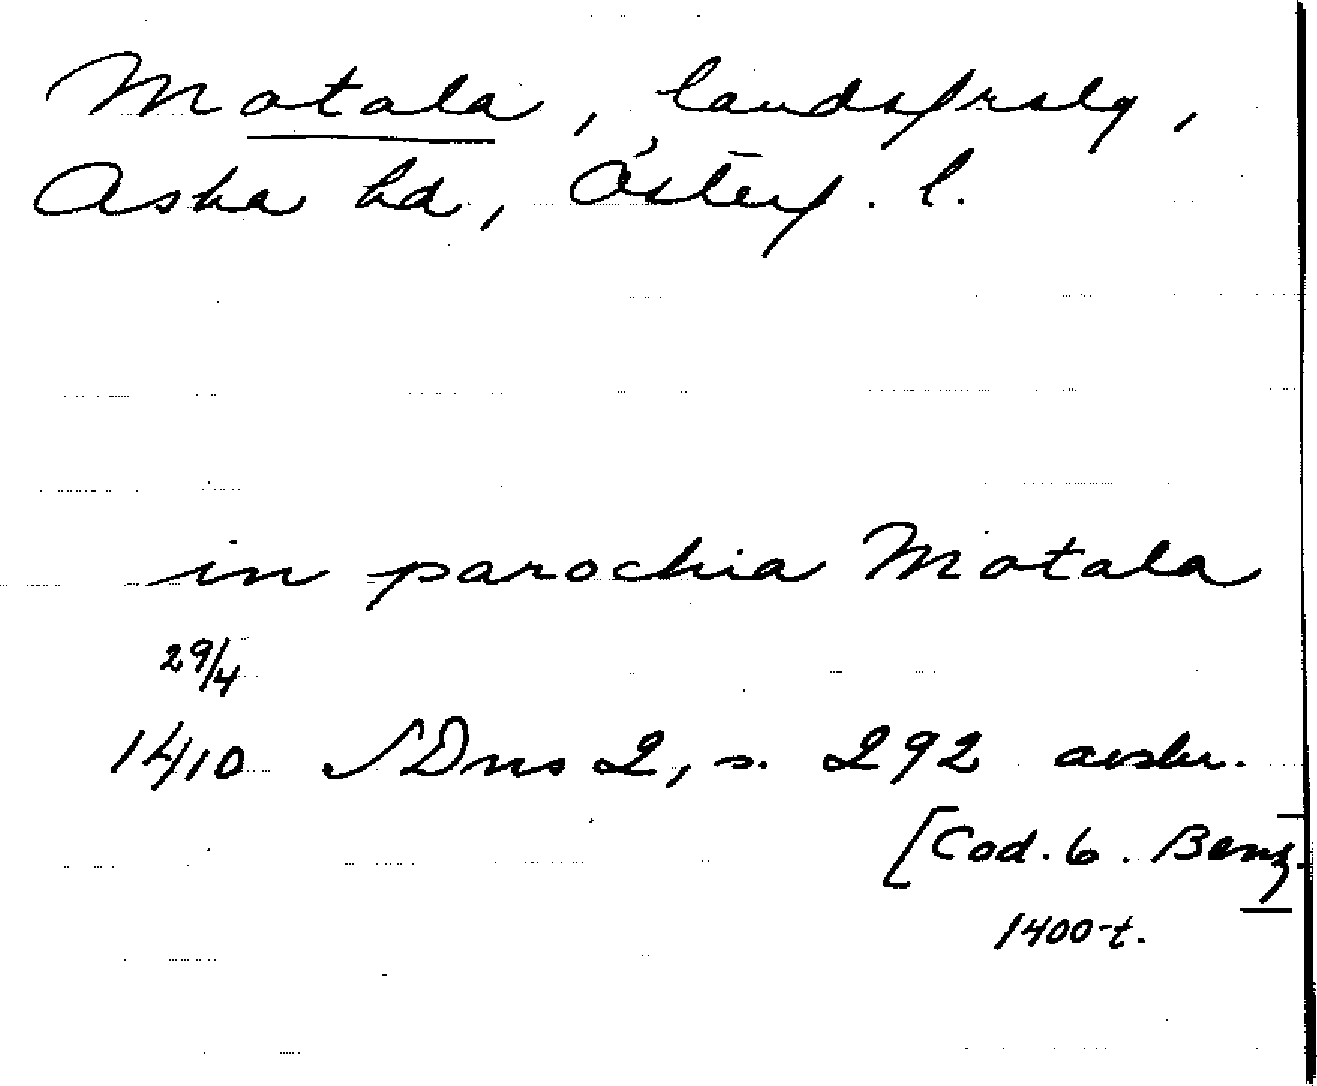 Motala, landsfrslg,
Aska hd, Österg. l.
in parochia Motala
29/4
1410 SDns 2, s. 292 avskr.
[Cod. 6. Benz.]
1400-t.